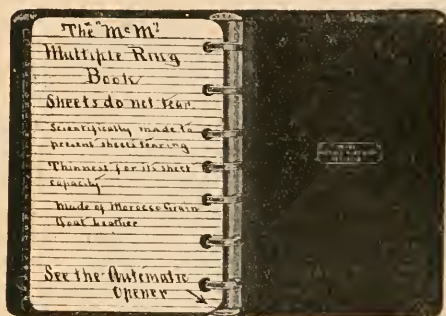 The "McM"
Multiple Ring
Book
Sheets do not tear.
Scientifically made to
prevent sheets tearing
Thinness for its sheet
capacity
Made of Morocco Grain
Goat Leather
See the Automatic
Opener